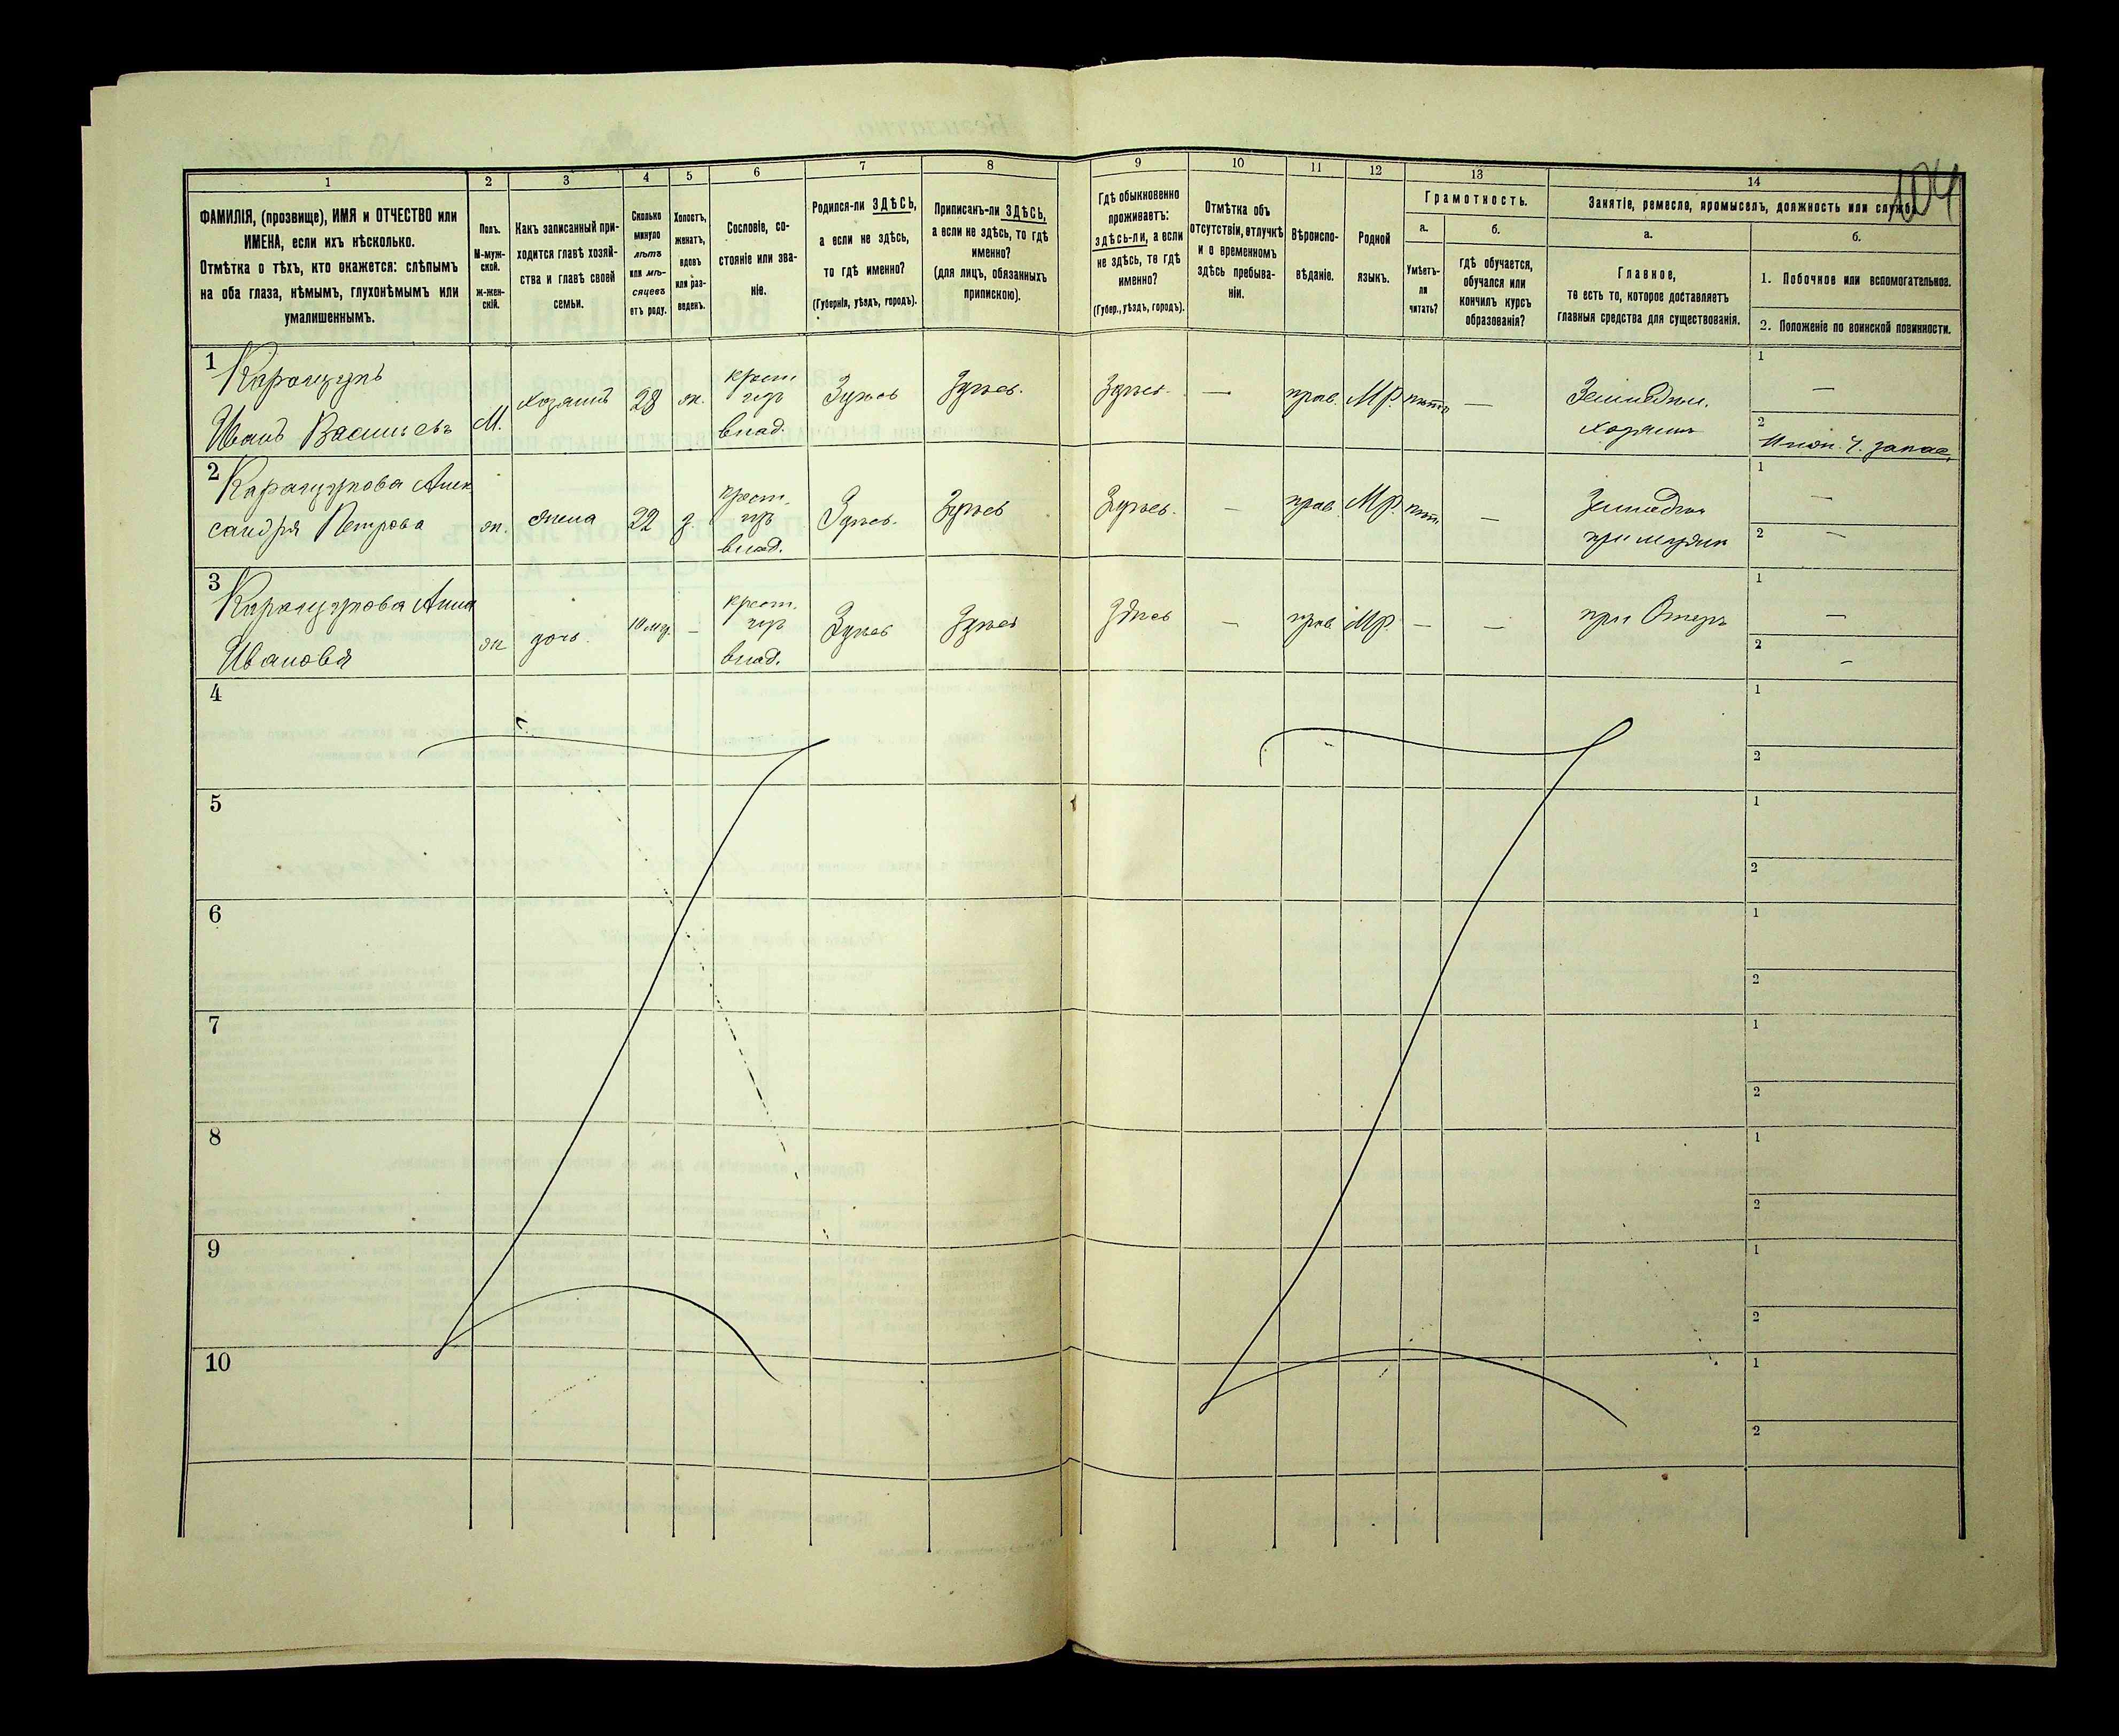 104
1 2 3 4 5 6 7 8 9 10 11 12 13 14
ФАМИЛІЯ, (прозвище), ИМЯ и ОТЧЕСТВО или
ИМЕНА, если ихъ нѣсколько.
Отмѣтка о тѣхъ, кто окажется: слѣпымъ
на оба глаза, нѣмымъ, глухонѣмымъ или
умалишеннымъ.
Полъ.
М-муж-
ской.
Ж-жен-
скій.
Какъ записанный при-
ходится главѣ хозяй-
ства и главѣ своей
семьи.
Сколько
минуло
лѣтъ
или мѣ-
сяцевъ
отъ роду.
Холостъ,
женатъ,
вдовъ
или раз-
веденъ.
Сословіе, со-
стояніе или зва-
ніе.
Родился-ли ЗДѢСЬ,
а если не здѣсь,
то гдѣ именно?
(Губернія, уѣздъ, городъ).
Приписанъ-ли ЗДѢСЬ,
а если не здѣсь, то гдѣ
именно?
(для лицъ, обязанныхъ
припискою).
Гдѣ обыкновенно
проживаетъ:
здѣсь-ли, а если
не здѣсь, то гдѣ
именно?
(Губер., уѣздъ, городъ).
Отмѣтка объ
отсутствіи, отлучкѣ
и о временномъ
здѣсь пребыва-
ніи.
Вѣроиспо-
вѣданіе.
Родной
языкъ.
Грамотность.
а.
Умѣетъ-
ли
читать?
б.
гдѣ обучается,
обучался или
кончилъ курсъ
образованія?
Занятіе, ремесло, промыселъ, должность или служба.
а.
Главное,
то есть то, которое доставляетъ
главныя средства для существованія.
б.
1. Побочное или вспомогательное.
2. Положеніе по воинской повинности.
1
Иванъ Васильевъ
М. хозяинъ 28 ж.
крест.
влад.
Здѣсь Здѣсь. Здѣсь. — прав. М.Р. нѣтъ —
Земледѣл.
хозяинъ
1 —
2
2
сандра Петрова
ж. жена 22 з.
крест.
влад.
Здѣсь. Здѣсь Здѣсь. — прав. М.Р. нѣтъ —
Земледѣл
при мужѣ
1 —
2 —
3
Иванова
ж дочь. 10 мц. —
крест.
влад.
Здѣсь Здѣсь Здѣсь — прав М.Р. — —
при Отцѣ
1 —
2 —
4 1
2
5 1
2
6 1
2
7 1
2
8 1
2
9 1
2
10 1
2